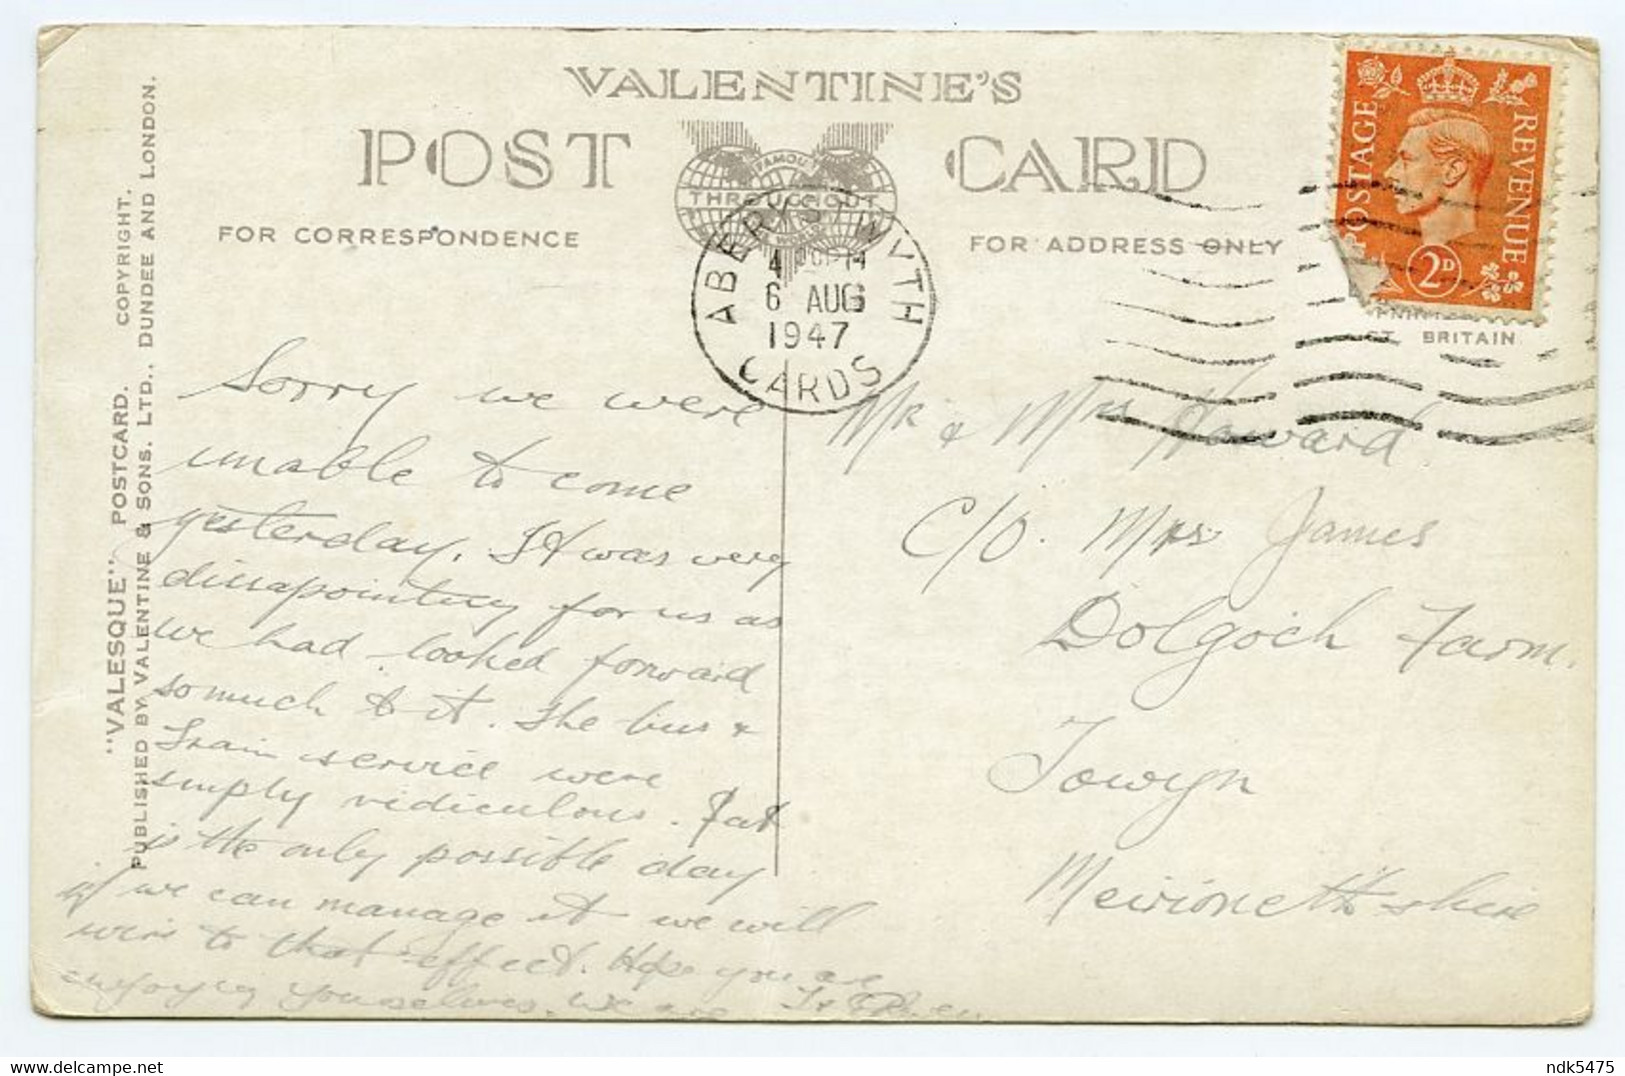 VALENTINE'S
POST CARD
FAMOUS
THROUGHOUT
FOR CORRESPONDENCE
FOR ADDRESS ONLY
ABERYSTWYTH
6 AUG
1947
CARDS
POSTAGE REVENUE
2D
GT. BRITAIN
"VALESQUE" POSTCARD. COPYRIGHT.
PUBLISHED BY VALENTINE & SONS. LTD., DUNDEE AND LONDON.
Sorry we were
unable to come
yesterday. It was very
dissapointing for us as
we had looked forward
so much to it. The bus &
Train service were
simply ridiculous. Sat
is the only possible day
if we can manage it we will
wire to that effect. Hope you are
enjoying yourselves. We are
Mr & Mrs Howard
C/O. Mrs James
Dolgoch Farm.
Towyn
Merionethshire
ndk5475